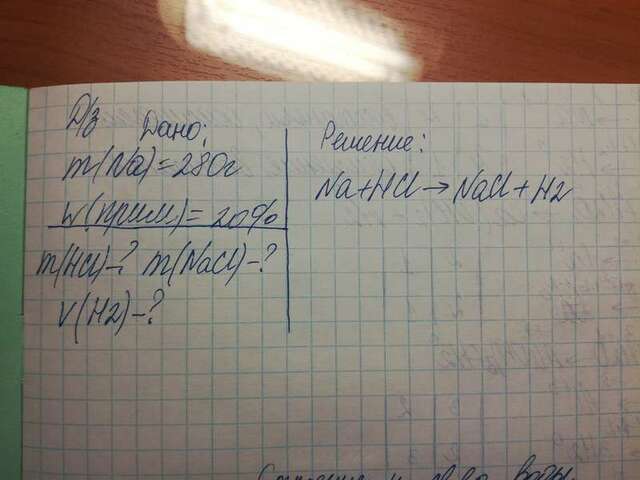 Д/з Дано;
m(Na)=280г
w(прим)=20%
m(HCl)-? m(NaCl)-?
V(H2)-?
Решение:
Na+HCl→NaCl+H2
воды